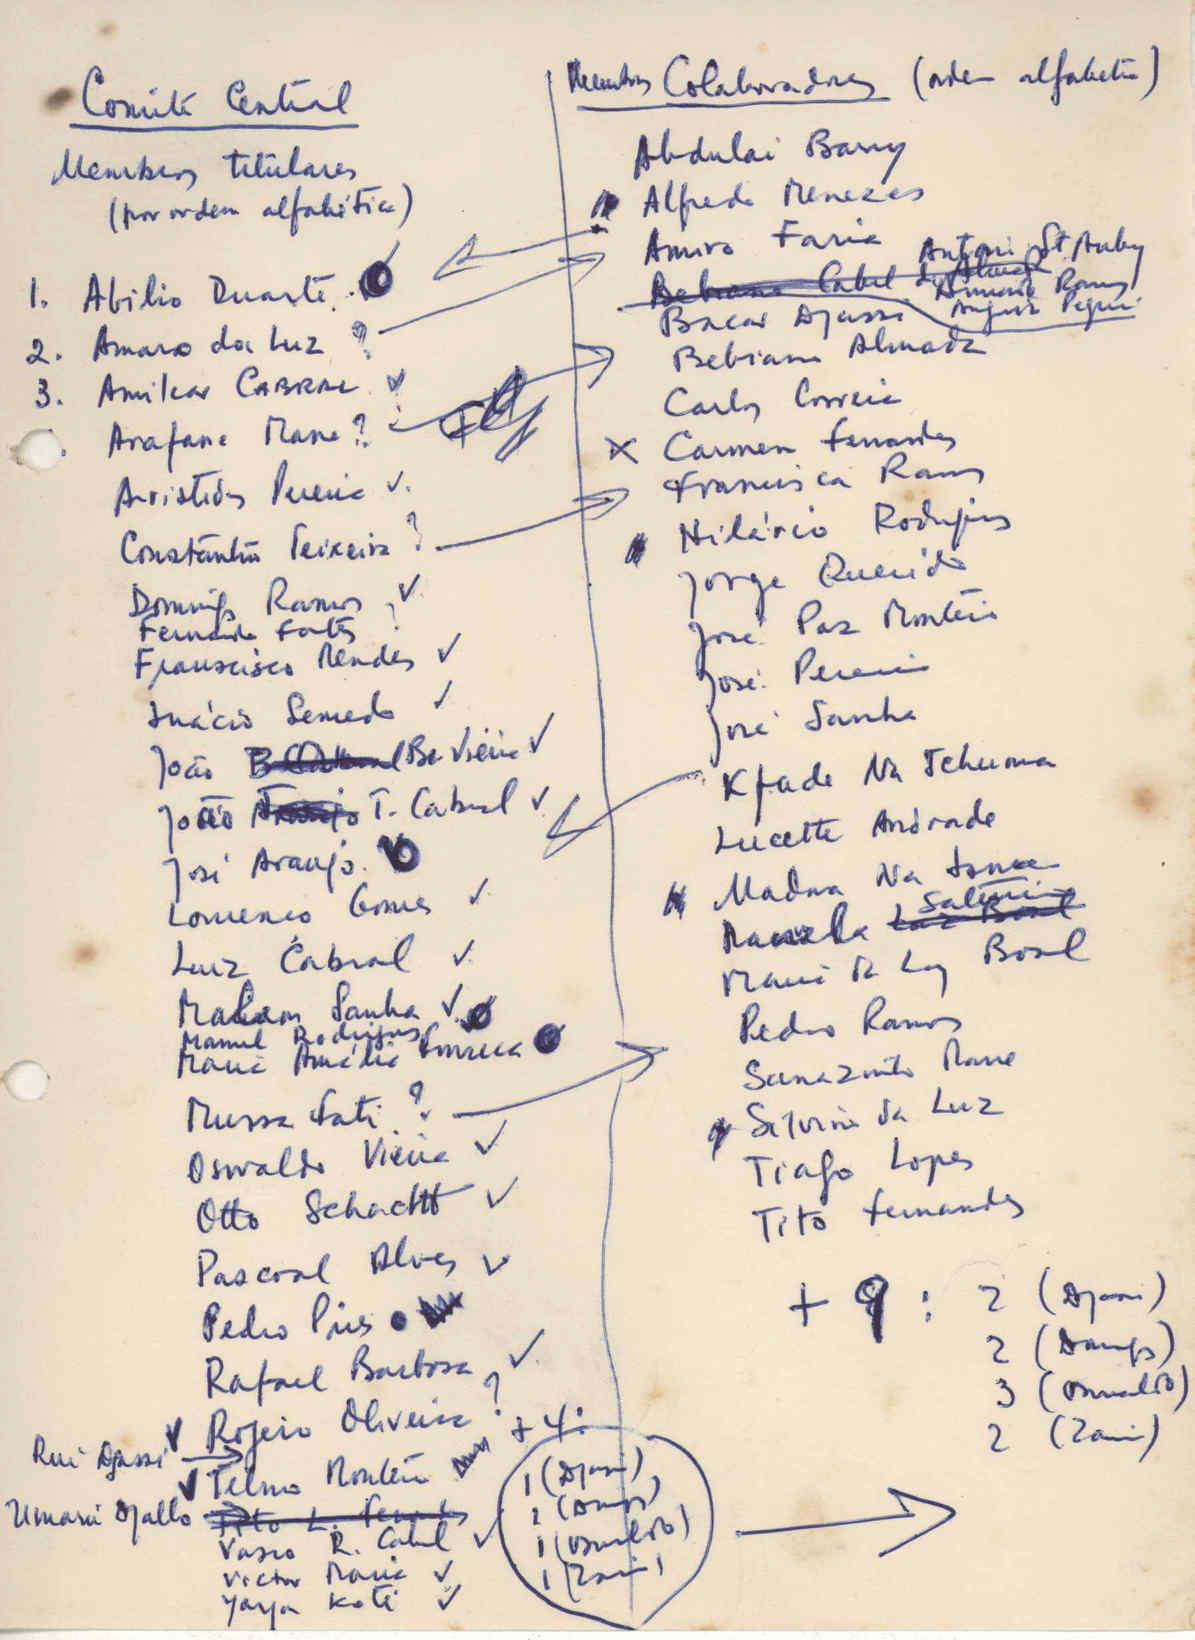 Comité Central
Membros titulares
(por ordem alfabética)
1. Abilio Duarte
2. Amaro da Luz ?
3. Amilcar CABRAL
Arafane Mane ?
Aristides Pereira
Constantino Teixeira ?
Domingos Ramos
Fernando Fortes
Francisco Mendes
Inácio Semedo
João Be. Vieira
João T. Cabral
José Araujo
Lourenço Gomes
Luiz Cabral
Malam Sanha
Manuel Rodrigues
Maria Amélia Fonseca
Mussa Fati ?
Osvaldo Vieira
Otto Schacht
Pascoal Alves
Pedro Pires
Rafael Barbosa
Rogerio Oliveira ?
Rui Djassi
Telmo Monteiro
Umaru Djallo
Tito L. Fernandes
Vasco R. Cabral
Victor Maria
Yaya Koté
+ 4:
1 (Djassi)
1 (Domingos)
1 (Osvaldo)
1 (Zain)
Membros Colaboradores (ordem alfabetica)
Abdulai Barry
Alfredo Menezes
Amiro Faria
Antoni St Auby
Bebiano Cabral d'Almada
Armando Ramos
Bacar Djassi
Bebiano Almada
Carlos Correia
X Carmen Fernandes
Francisca Ramos
Hilário Rodrigues
Jorge Querido
José Paz Monteiro
José Pereira
José Sanha
Kfade Na Tchuma
Lucette Andrade
Maduna Na
Manuela Saturnino
Maria da Luz Boal
Pedro Ramos
Sanazinto Mane
Silvino da Luz
Tiago Lopes
Tito Fernandes
+ 9 : 2 (Djassi)
2 (Domingos)
3 (Osvaldo)
2 (Zain)